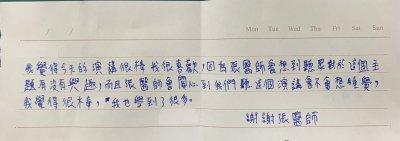 Mon Tue Wed Thu Fri Sat Sun
我覺得今天的演講很棒我很喜歡,因為張醫師會想到聽眾對於這個主
題有沒有興趣,而且張醫師會關心到我們聽這個演講會不會想睡覺,
我覺得很棒,我也學到了很多。
謝謝張醫師